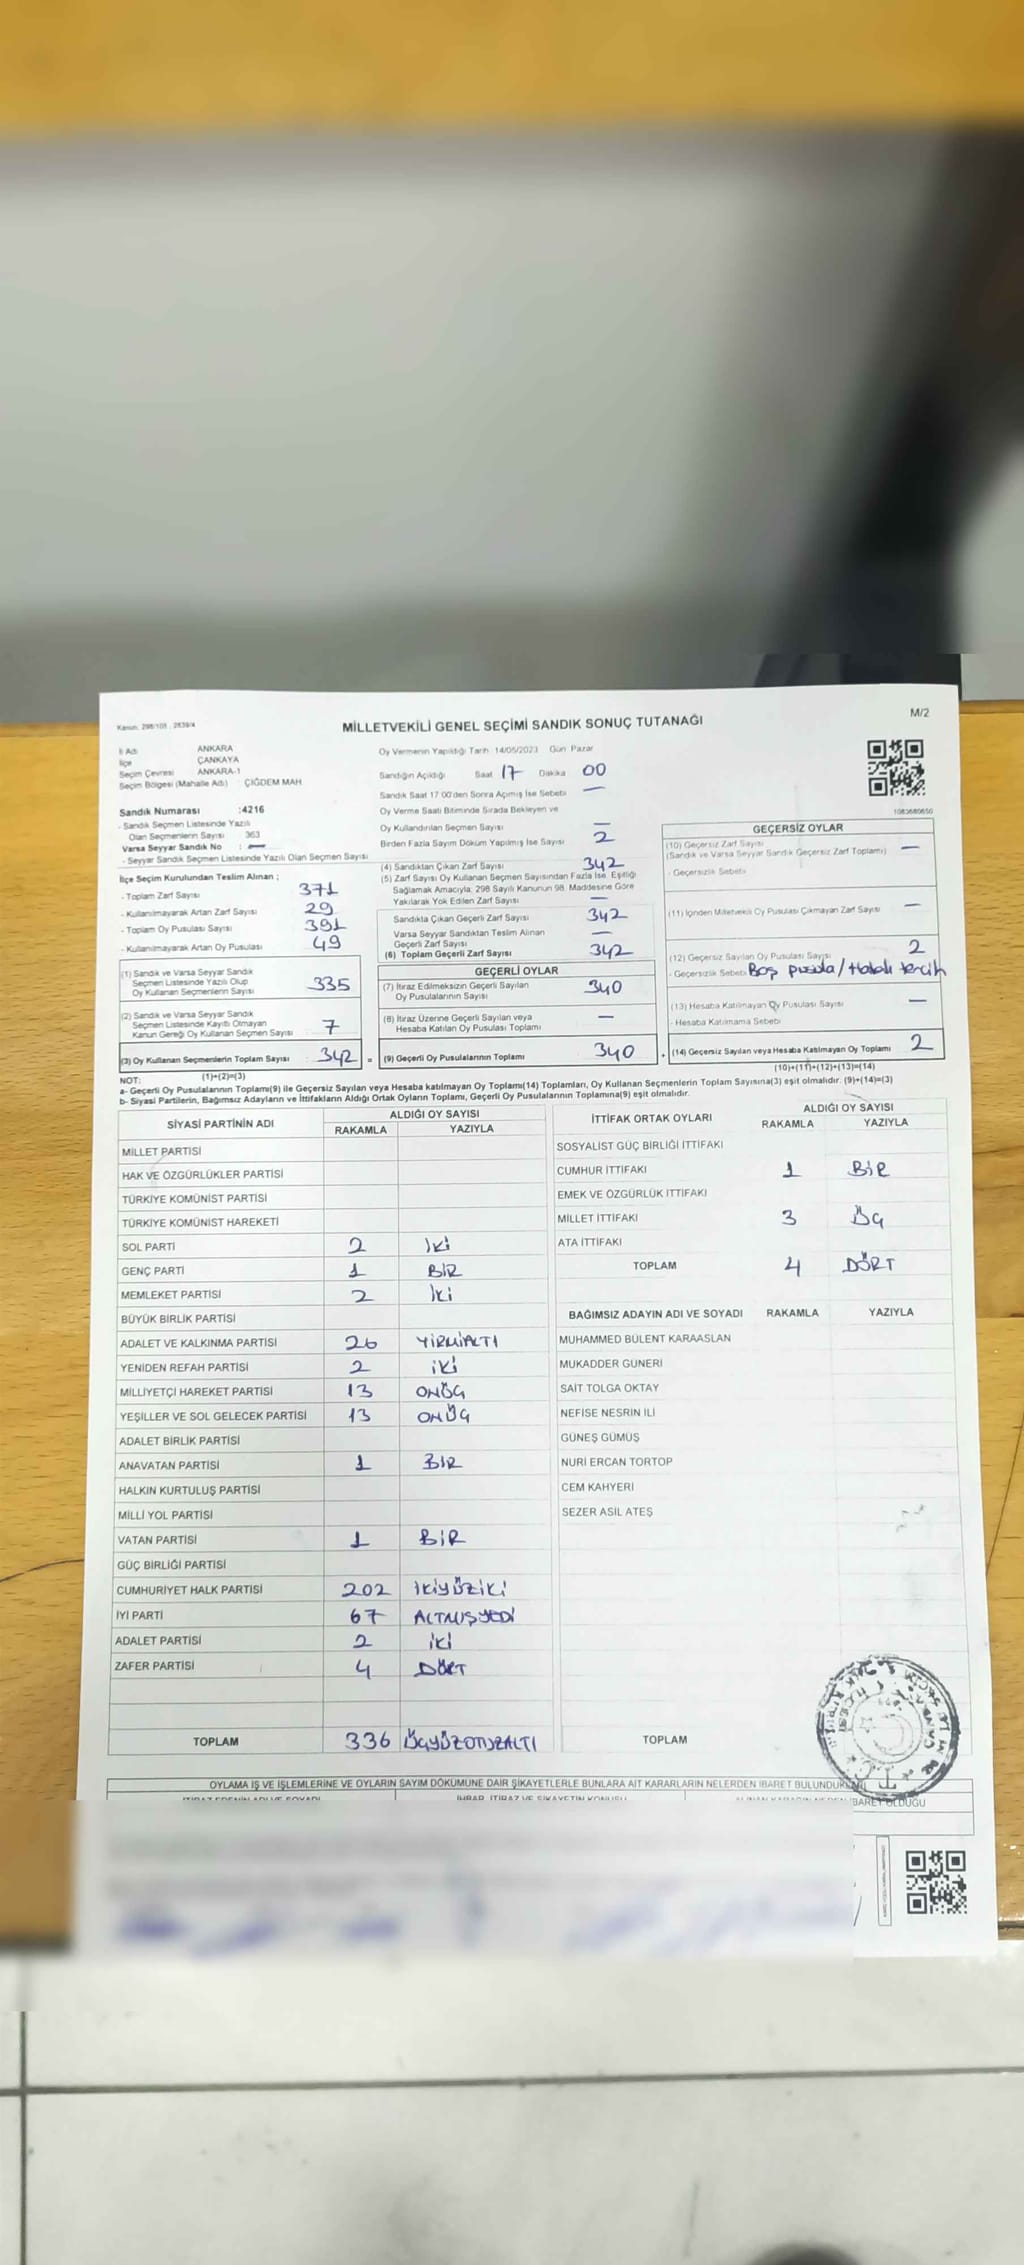 Kanun: 298/105 , 2839/4
MİLLETVEKİLİ GENEL SEÇİMİ SANDIK SONUÇ TUTANAĞI
M/2
İl Adı ANKARA
İlçe ÇANKAYA
Seçim Çevresi ANKARA-1
Seçim Bölgesi (Mahalle Adı) ÇİĞDEM MAH.
Sandık Numarası :4216
- Sandık Seçmen Listesinde Yazılı
Olan Seçmenlerin Sayısı 363
Varsa Seyyar Sandık No : —
- Seyyar Sandık Seçmen Listesinde Yazılı Olan Seçmen Sayısı
İlçe Seçim Kurulundan Teslim Alınan ;
- Toplam Zarf Sayısı 371
- Kullanılmayarak Artan Zarf Sayısı 29
- Toplam Oy Pusulası Sayısı 391
- Kullanılmayarak Artan Oy Pusulası 49
(1) Sandık ve Varsa Seyyar Sandık
Seçmen Listesinde Yazılı Olup
Oy Kullanan Seçmenlerin Sayısı 335
(2) Sandık ve Varsa Seyyar Sandık
Seçmen Listesinde Kayıtlı Olmayan
Kanun Gereği Oy Kullanan Seçmen Sayısı 7
(3) Oy Kullanan Seçmenlerin Toplam Sayısı 342 =
(1)+(2)=(3)
Oy Vermenin Yapıldığı Tarih 14/05/2023 Gün Pazar
Sandığın Açıldığı Saat 17 Dakika 00
Sandık Saat 17:00'den Sonra Açılmış İse Sebebi —
Oy Verme Saati Bitiminde Sırada Bekleyen ve
Oy Kullandırılan Seçmen Sayısı —
Birden Fazla Sayım Döküm Yapılmış İse Sayısı 2
(4) Sandıktan Çıkan Zarf Sayısı 342
(5) Zarf Sayısı Oy Kullanan Seçmen Sayısından Fazla İse, Eşitliği
Sağlamak Amacıyla; 298 Sayılı Kanunun 98. Maddesine Göre
Yakılarak Yok Edilen Zarf Sayısı —
Sandıkta Çıkan Geçerli Zarf Sayısı 342
Varsa Seyyar Sandıktan Teslim Alınan
Geçerli Zarf Sayısı —
(6) Toplam Geçerli Zarf Sayısı 342
GEÇERLİ OYLAR
(7) İtiraz Edilmeksizin Geçerli Sayılan
Oy Pusulalarının Sayısı 340
(8) İtiraz Üzerine Geçerli Sayılan veya
Hesaba Katılan Oy Pusulası Toplamı —
(9) Geçerli Oy Pusulalarının Toplamı 340 +
1083680650
GEÇERSİZ OYLAR
(10) Geçersiz Zarf Sayısı
(Sandık ve Varsa Seyyar Sandık Geçersiz Zarf Toplamı) —
- Geçersizlik Sebebi
(11) İçinden Milletvekili Oy Pusulası Çıkmayan Zarf Sayısı —
(12) Geçersiz Sayılan Oy Pusulası Sayısı 2
- Geçersizlik Sebebi Boş pusula/Hatalı tercih
(13) Hesaba Katılmayan Oy Pusulası Sayısı —
- Hesaba Katılmama Sebebi
(14) Geçersiz Sayılan veya Hesaba Katılmayan Oy Toplamı 2
(10)+(11)+(12)+(13)=(14)
NOT:
a- Geçerli Oy Pusulalarının Toplamı(9) ile Geçersiz Sayılan veya Hesaba katılmayan Oy Toplamı(14) Toplamları, Oy Kullanan Seçmenlerin Toplam Sayısına(3) eşit olmalıdır. (9)+(14)=(3)
b- Siyasi Partilerin, Bağımsız Adayların ve İttifakların Aldığı Ortak Oyların Toplamı, Geçerli Oy Pusulalarının Toplamına(9) eşit olmalıdır.
SİYASİ PARTİNİN ADI ALDIĞI OY SAYISI
RAKAMLA YAZIYLA
MİLLET PARTİSİ
HAK VE ÖZGÜRLÜKLER PARTİSİ
TÜRKİYE KOMÜNİST PARTİSİ
TÜRKİYE KOMÜNİST HAREKETİ
SOL PARTİ 2 İKİ
GENÇ PARTİ 1 BİR
MEMLEKET PARTİSİ 2 İKİ
BÜYÜK BİRLİK PARTİSİ
ADALET VE KALKINMA PARTİSİ 26 YİRMİALTI
YENİDEN REFAH PARTİSİ 2 İKİ
MİLLİYETÇİ HAREKET PARTİSİ 13 ONÜÇ
YEŞİLLER VE SOL GELECEK PARTİSİ 13 ONÜÇ
ADALET BİRLİK PARTİSİ
ANAVATAN PARTİSİ 1 BİR
HALKIN KURTULUŞ PARTİSİ
MİLLİ YOL PARTİSİ
VATAN PARTİSİ 1 BİR
GÜÇ BİRLİĞİ PARTİSİ
CUMHURİYET HALK PARTİSİ 202 İKİYÜZİKİ
İYİ PARTİ 67 ALTMIŞYEDİ
ADALET PARTİSİ 2 İKİ
ZAFER PARTİSİ 4 DÖRT
TOPLAM 336 ÜÇYÜZOTUZALTI
İTTİFAK ORTAK OYLARI ALDIĞI OY SAYISI
RAKAMLA YAZIYLA
SOSYALİST GÜÇ BİRLİĞİ İTTİFAKI
CUMHUR İTTİFAKI 1 BİR
EMEK VE ÖZGÜRLÜK İTTİFAKI
MİLLET İTTİFAKI 3 ÜÇ
ATA İTTİFAKI
TOPLAM 4 DÖRT
BAĞIMSIZ ADAYIN ADI VE SOYADI RAKAMLA YAZIYLA
MUHAMMED BÜLENT KARAASLAN
MUKADDER GÜNERİ
SAİT TOLGA OKTAY
NEFİSE NESRİN İLİ
GÜNEŞ GÜMÜŞ
NURİ ERCAN TORTOP
CEM KAHYERİ
SEZER ASİL ATEŞ
TOPLAM
OYLAMA İŞ VE İŞLEMLERİNE VE OYLARIN SAYIM DÖKÜMÜNE DAİR ŞİKAYETLERLE BUNLARA AİT KARARLARIN NELERDEN İBARET BULUNDUKLARI
İTİRAZ EDENİN ADI VE SOYADI İHBAR, İTİRAZ VE ŞİKAYETİN KONUSU ALINAN KARARIN NEDEN İBARET OLDUĞU